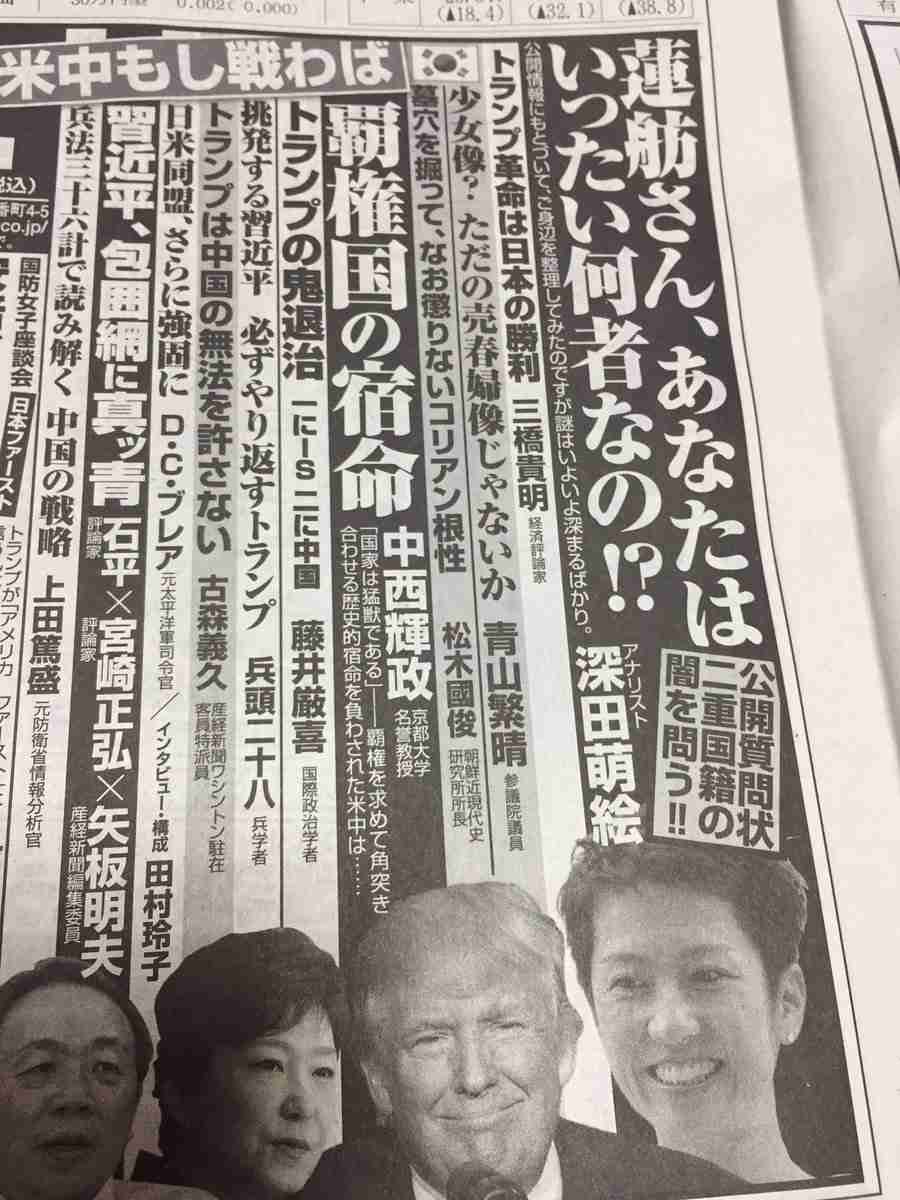 0.002(0.000)
(▲18.4)
(▲32.1)
(▲38.8)
有
米中もし戦わば
蓮舫さん、あなたは
いったい何者なの!?
公開情報にもとづいて、ご身辺を整理してみたのですが謎はいよいよ深まるばかり。
アナリスト
深田萌絵
公開質問状
二重国籍の
闇を問う!!
トランプ革命は日本の勝利 三橋貴明 経済評論家
少女像？ただの売春婦像じゃないか 青山繁晴 参議院議員
墓穴を掘って、なお懲りないコリアン根性 松木國俊 朝鮮近現代史
研究所所長
覇権国の宿命 中西輝政 京都大学
名誉教授
「国家は猛獣である」――覇権を求めて角突き
合わせる歴史的宿命を負わされた米中は……
トランプの鬼退治 一にIS 二に中国 藤井厳喜 国際政治学者
挑発する習近平 必ずやり返すトランプ 兵頭二十八 兵学者
トランプは中国の無法を許さない 古森義久 産経新聞ワシントン駐在
客員特派員
日米同盟、さらに強固に D・C・ブレア 元太平洋軍司令官／インタビュー・構成 田村玲子
習近平、包囲網に真ッ青 石平 評論家×宮崎正弘 評論家×矢板明夫 産経新聞編集委員
兵法三十六計で読み解く 中国の戦略 上田篤盛 元防衛省情報分析官
国防女子座談会
日本ファースト
トランプが「アメリカ ファースト
込)
番町4-5
co.jp/